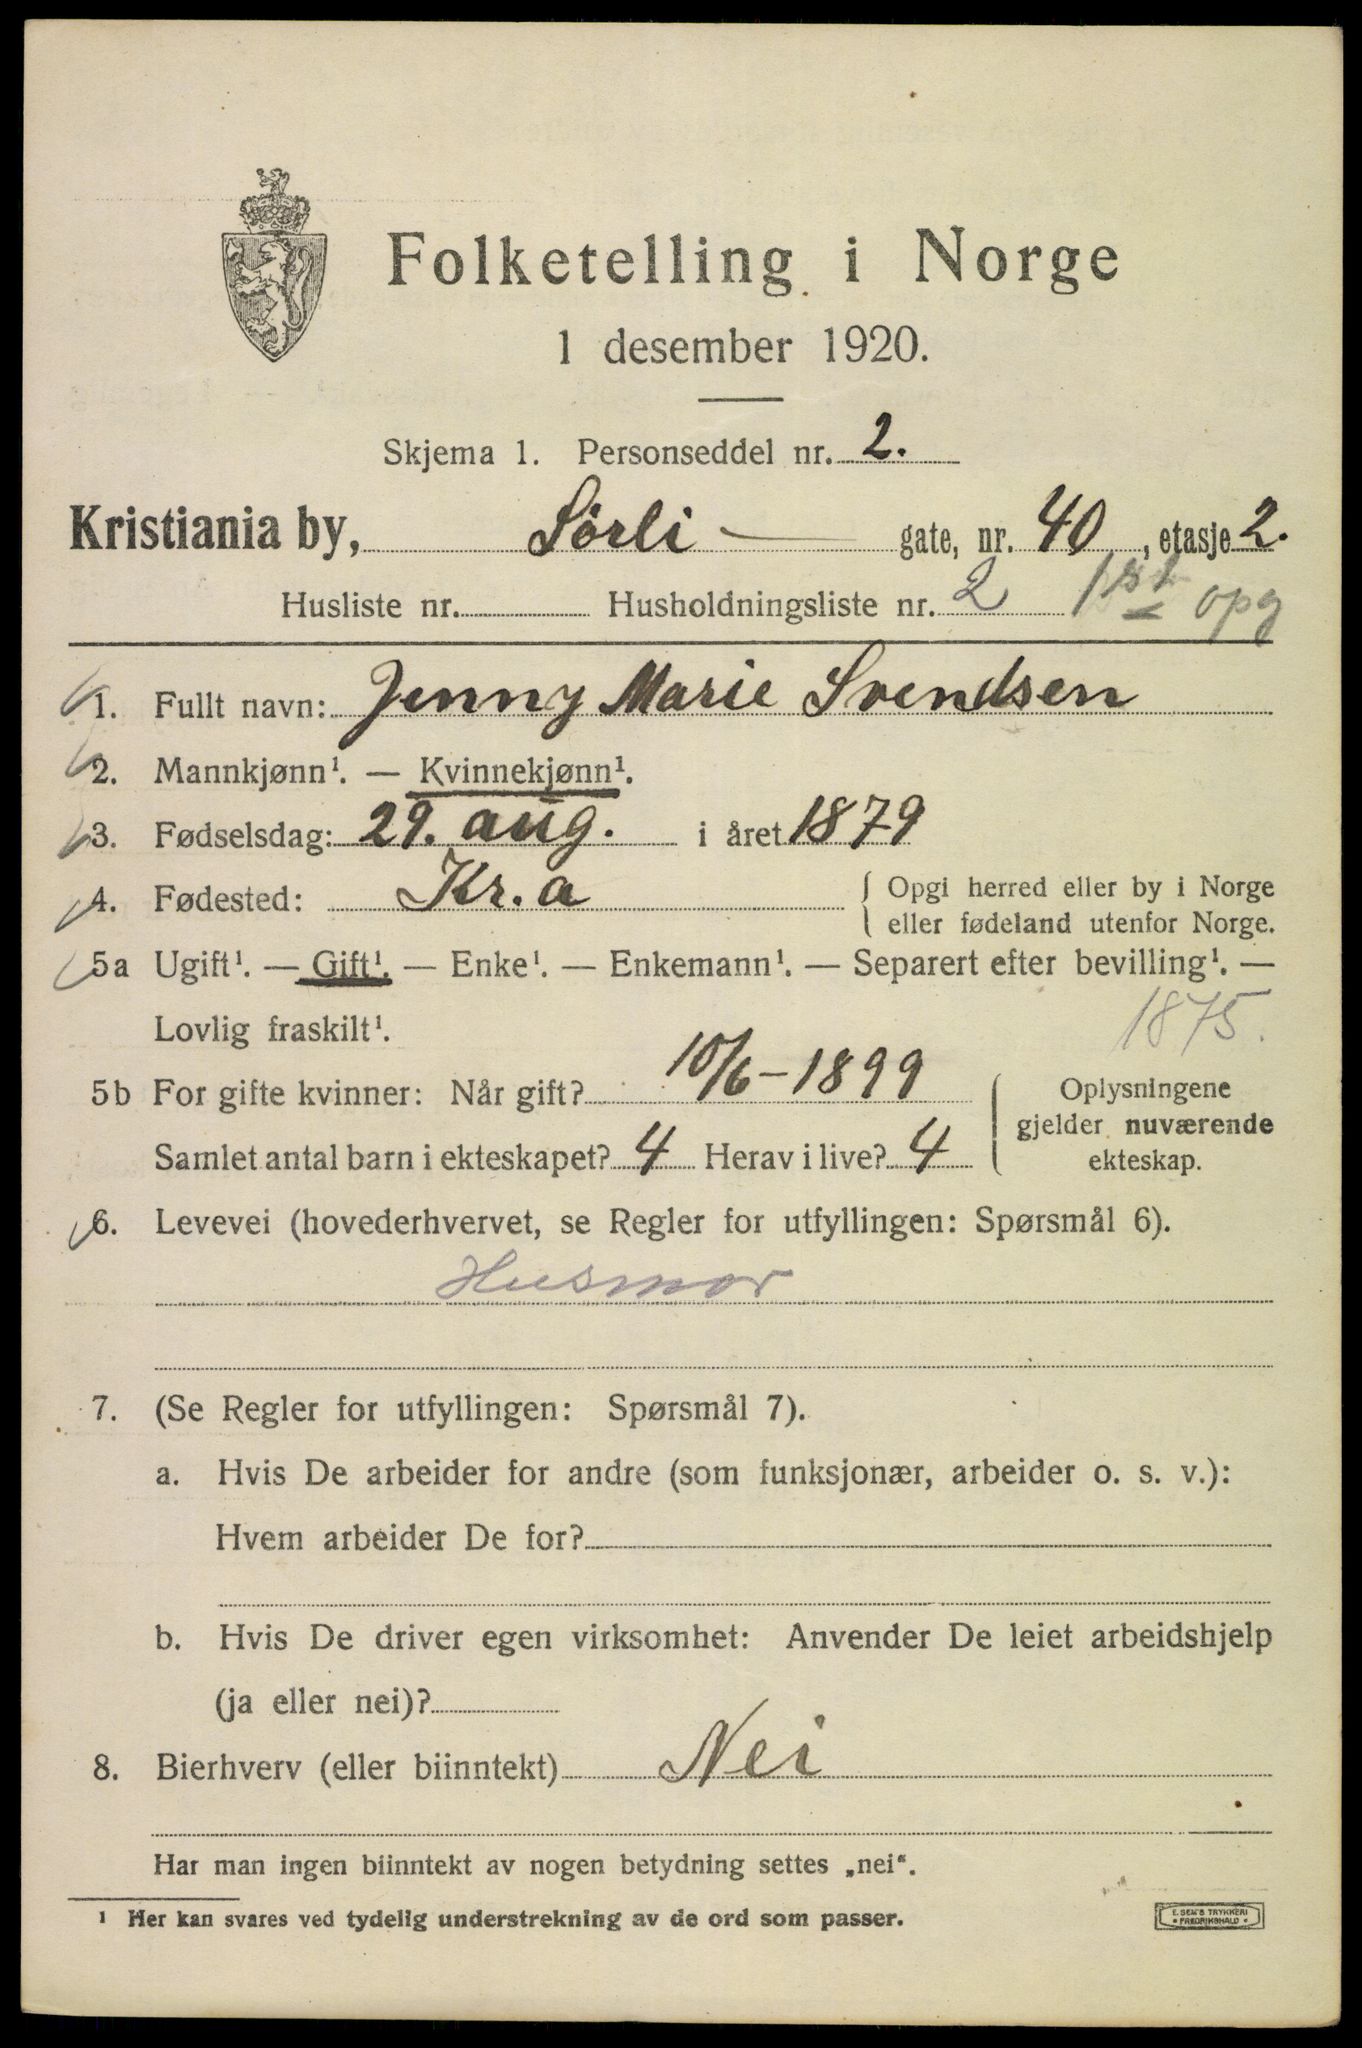 Folketelling i Norge
1 desember 1920.
Skjema 1. Personseddel nr. 2.
Kristiania by, Sörli — gate, nr. 40, etasje 2.
Husliste nr. Husholdningsliste nr. 2 opg
1. Fullt navn: Jenny Marie Svendsen
2. Mannkjønn¹. — Kvinnekjønn¹.
3. Fødselsdag: 29. aug. i året 1879
4. Fødested: Kr. a { Opgi herred eller by i Norge
eller fødeland utenfor Norge.
5a Ugift¹. — Gift¹. — Enke¹. — Enkemann¹. — Separert efter bevilling¹. —
Lovlig fraskilt¹. 1875.
5b For gifte kvinner: Når gift? 10/6 – 1899
Samlet antal barn i ekteskapet? 4 Herav i live? 4
Oplysningene
gjelder nuværende
ekteskap.
6. Levevei (hovederhvervet, se Regler for utfyllingen: Spørsmål 6).
Husmor
7. (Se Regler for utfyllingen: Spørsmål 7).
a. Hvis De arbeider for andre (som funksjonær, arbeider o. s. v.):
Hvem arbeider De for?
b. Hvis De driver egen virksomhet: Anvender De leiet arbeidshjelp
(ja eller nei)?
8. Bierhverv (eller biinntekt) Nei
Har man ingen biinntekt av nogen betydning settes „nei“.
¹ Her kan svares ved tydelig understrekning av de ord som passer.
E. SEM'S TRYKKERI
• FREDRIKSHALD •